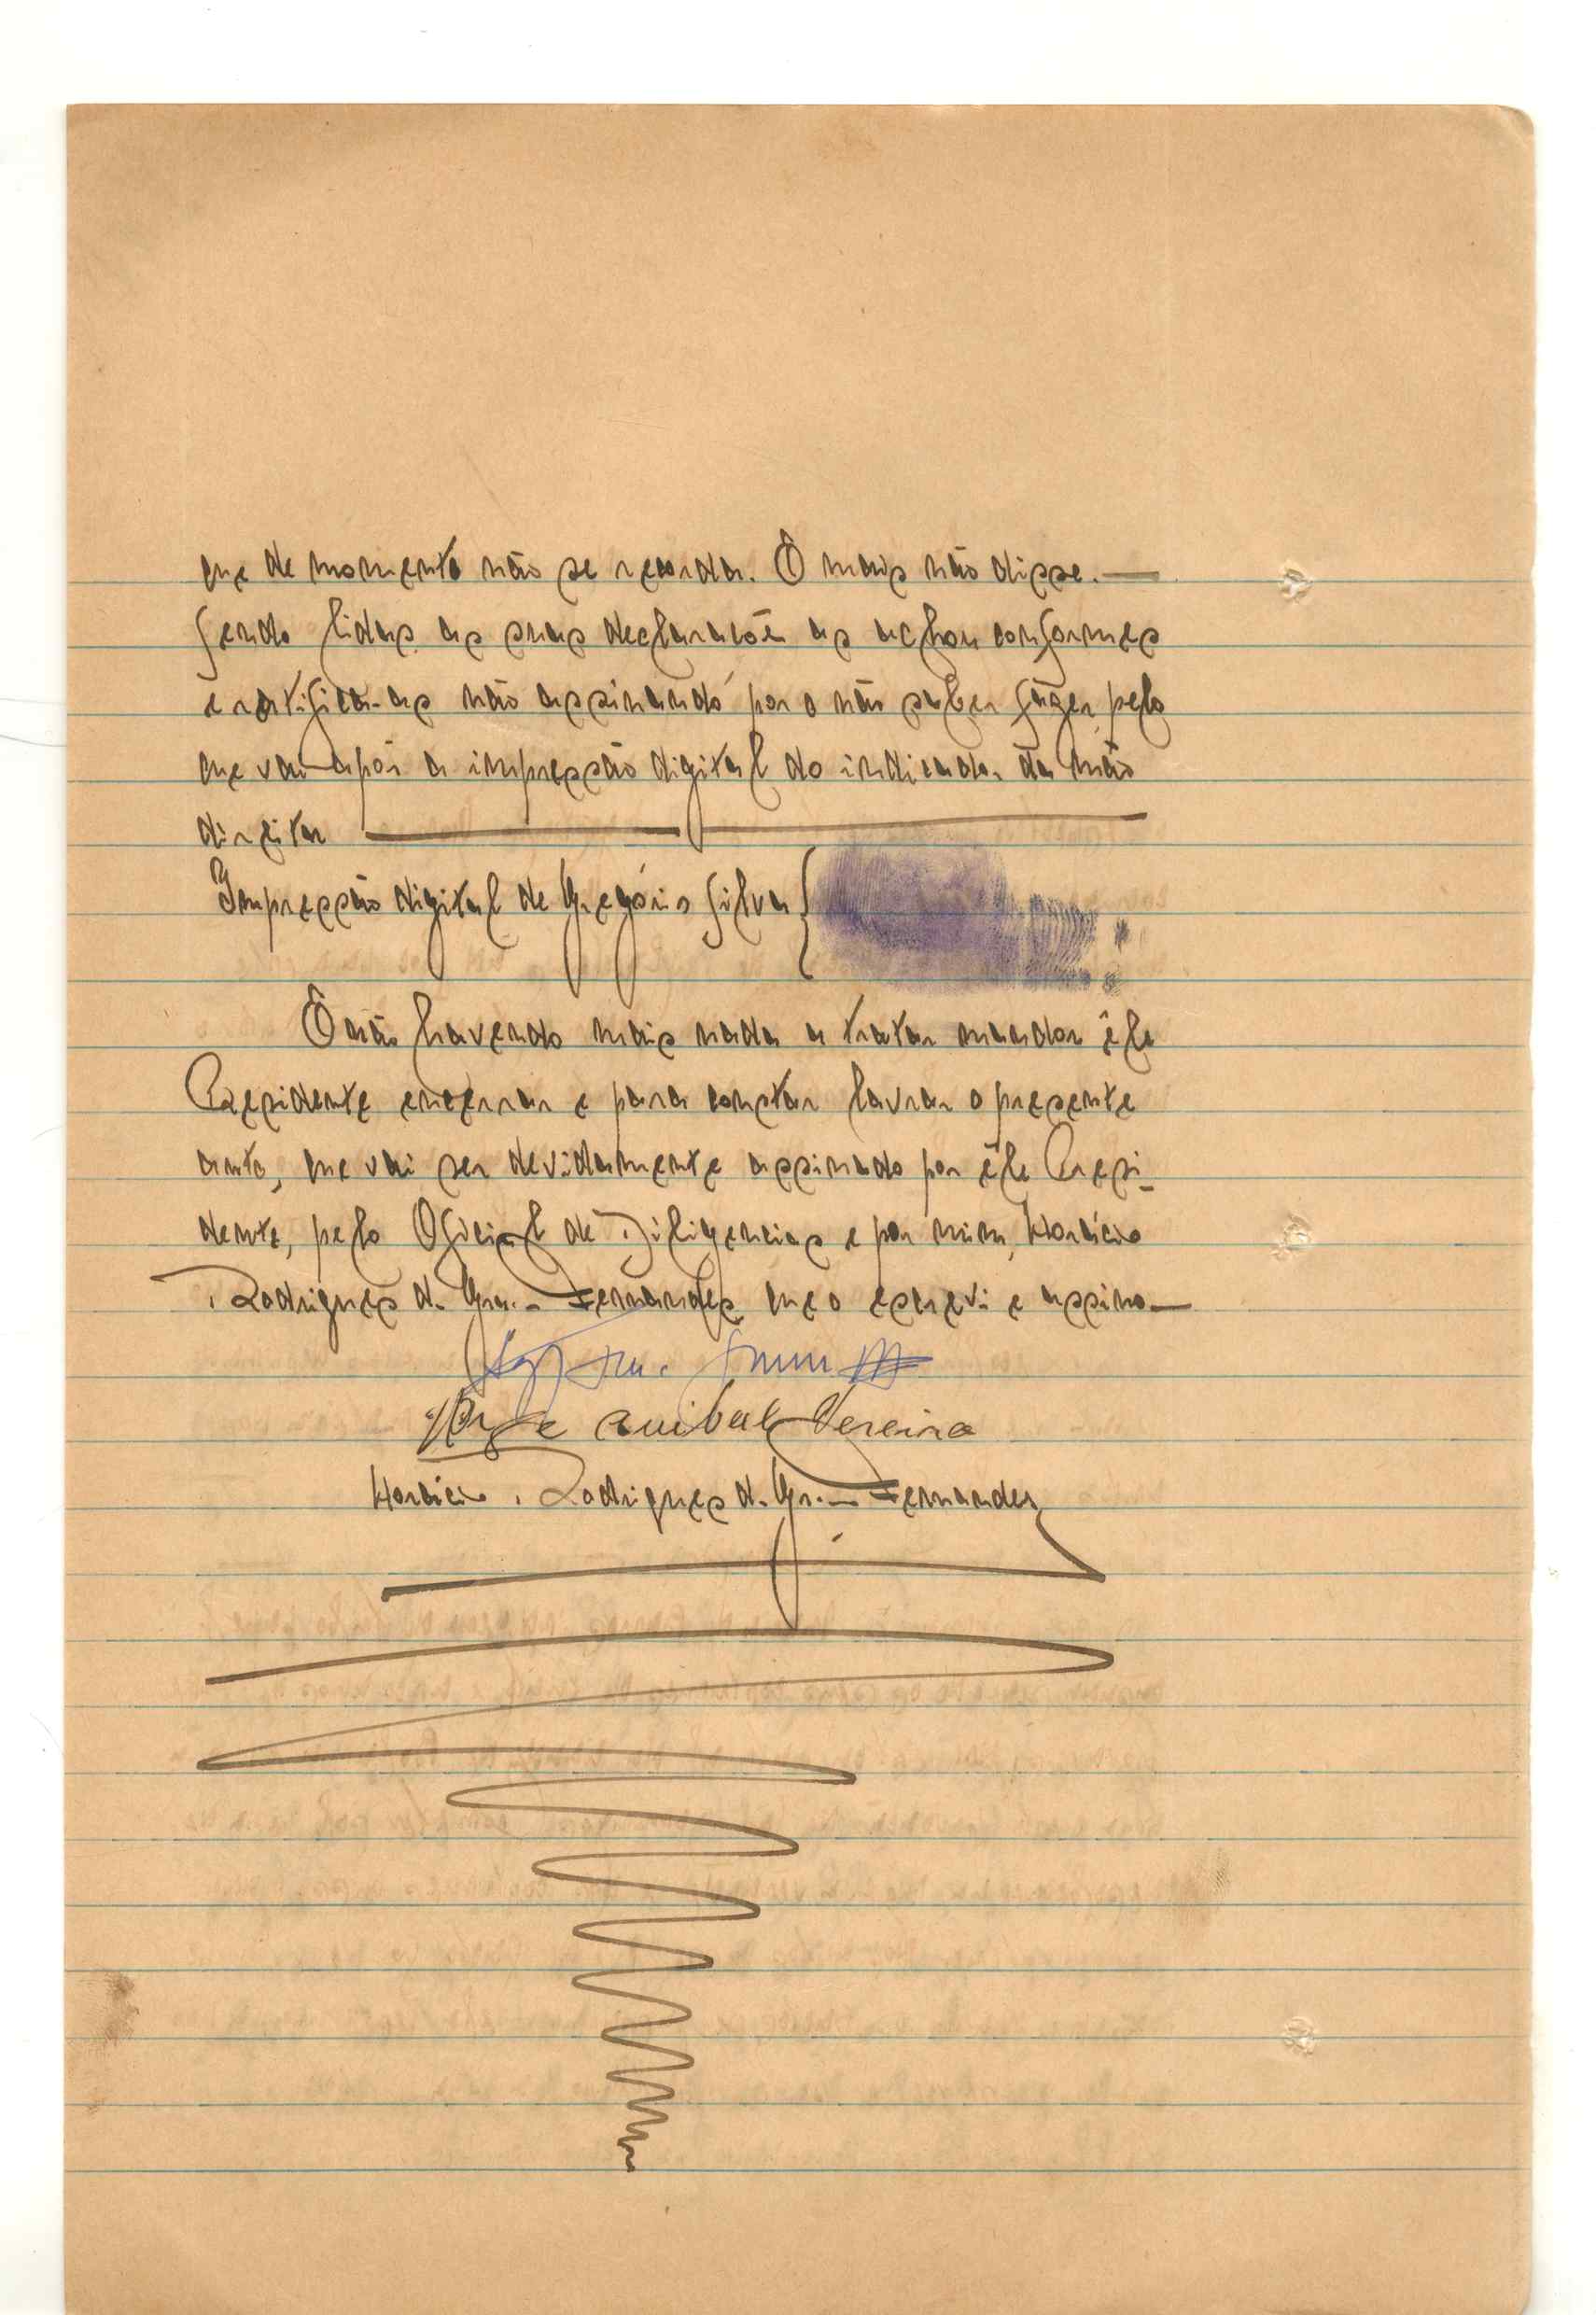 que de momento não se recorda. E mais não disse.—
Sendo lidas as suas declarações as achou conformes
e ratifica-as não assinando por o não saber fazer, pelo
que vai apôr a impressão digital do indicador da mão
direita
Impressão digital de Gregório Silva
E não havendo mais nada a tratar mandou êle
Presidente encerrar e para constar lavrar o presente
auto, que vai ser devidamente assinado por êle Presi-
dente, pelo Oficial de Diligencias e por mim, Horácio
Rodrigues d. Fernandes que o escrevi e assino—
Jorge Anibal Pereira
Horácio Rodrigues d. Fernandes